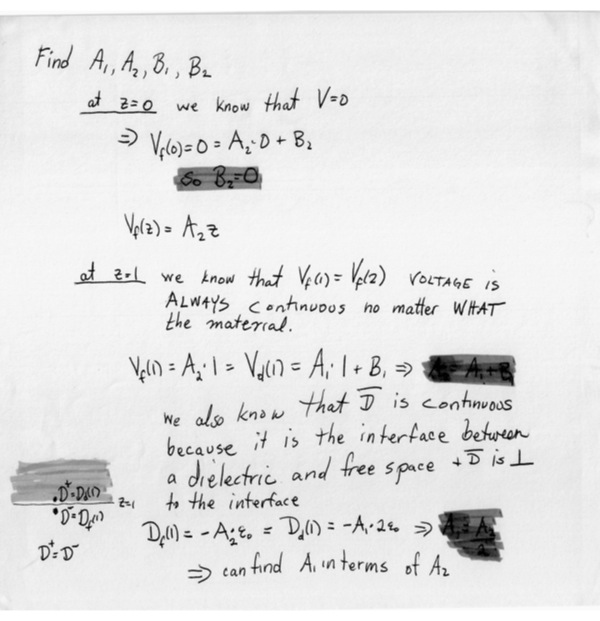 Find A₁, A₂, B₁, B₂
at z=0 we know that V=0
⇒ V_f(0)=0 = A₂·0 + B₂
So B₂=0
V_f(z) = A₂z
at z=1 we know that V_f(1) = V_f(2) VOLTAGE is
ALWAYS continuous no matter WHAT
the material.
V_f(1) = A₂·1 = V_d(1) = A₁·1 + B₁ ⇒ A₂ = A₁ + B₁
we also know that D̅ is continuous
because it is the interface between
a dielectric and free space + D̅ is ⊥
to the interface
D⁺=D_d(1)
z=1
D⁻=D_f(1)
D⁺=D⁻
D_f(1) = -A₂ε₀ = D_d(1) = -A₁·2ε₀ ⇒ A₁ = A₂/2
⇒ can find A₁ in terms of A₂